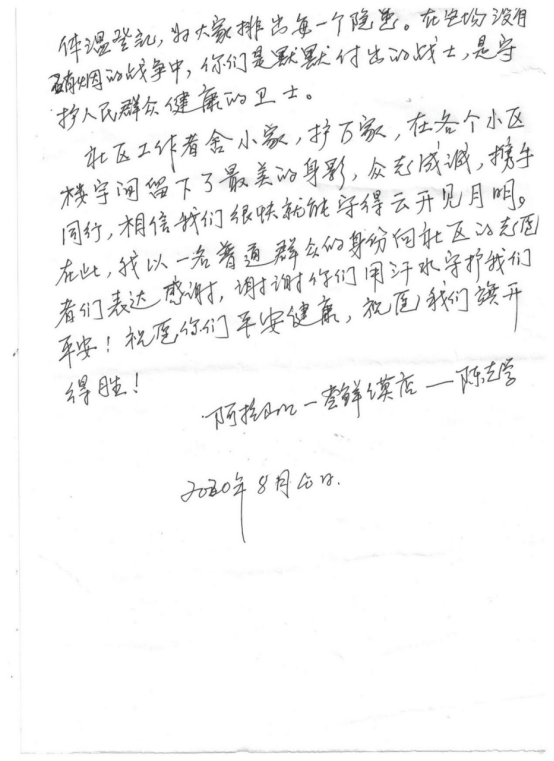 体温登记，为大家排出每一个隐患。在这场没有
硝烟的战争中，你们是默默付出的战士，是守
护人民群众健康的卫士。
社区工作者舍小家，护万家，在各个小区
楼宇间留下了最美的身影，众志成诚，携手
同行，相信我们很快就能守得云开见月明。
在此，我以一名普通群众的身份向社区的志愿
者们表达感谢，谢谢你们用汗水守护我们
平安！祝愿你们平安健康，祝愿我们旗开
得胜！
一尝鲜馍店——陈志学
2020年8月 日.